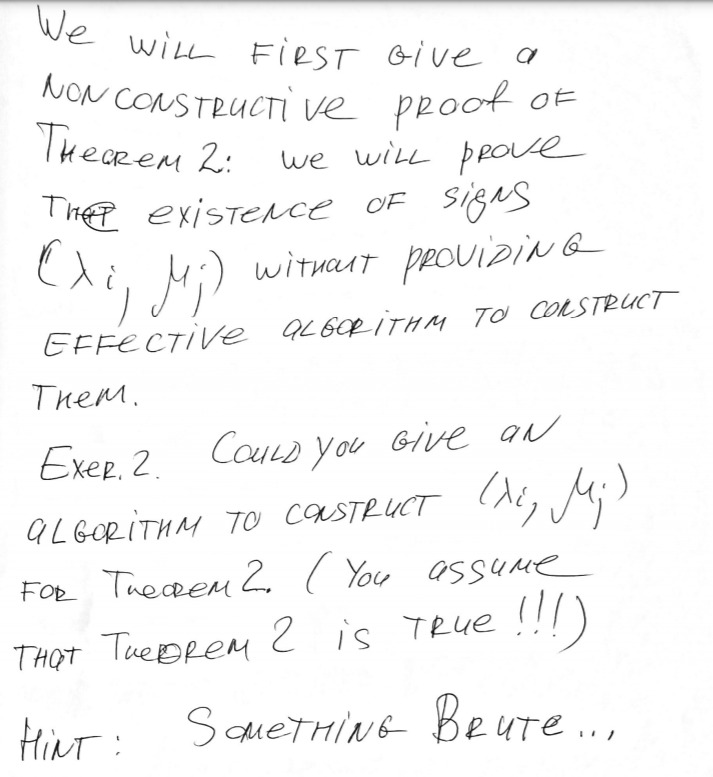 We will first give a
nonconstructive proof of
Theorem 2: we will prove
that existence of signs
(λi, μj) without providing
effective algorithm to construct
them.
Exer. 2. Could you give an
algorithm to construct (λi, μj)
for Theorem 2. (You assume
that Theorem 2 is true!!!)
Hint: Something Brute...